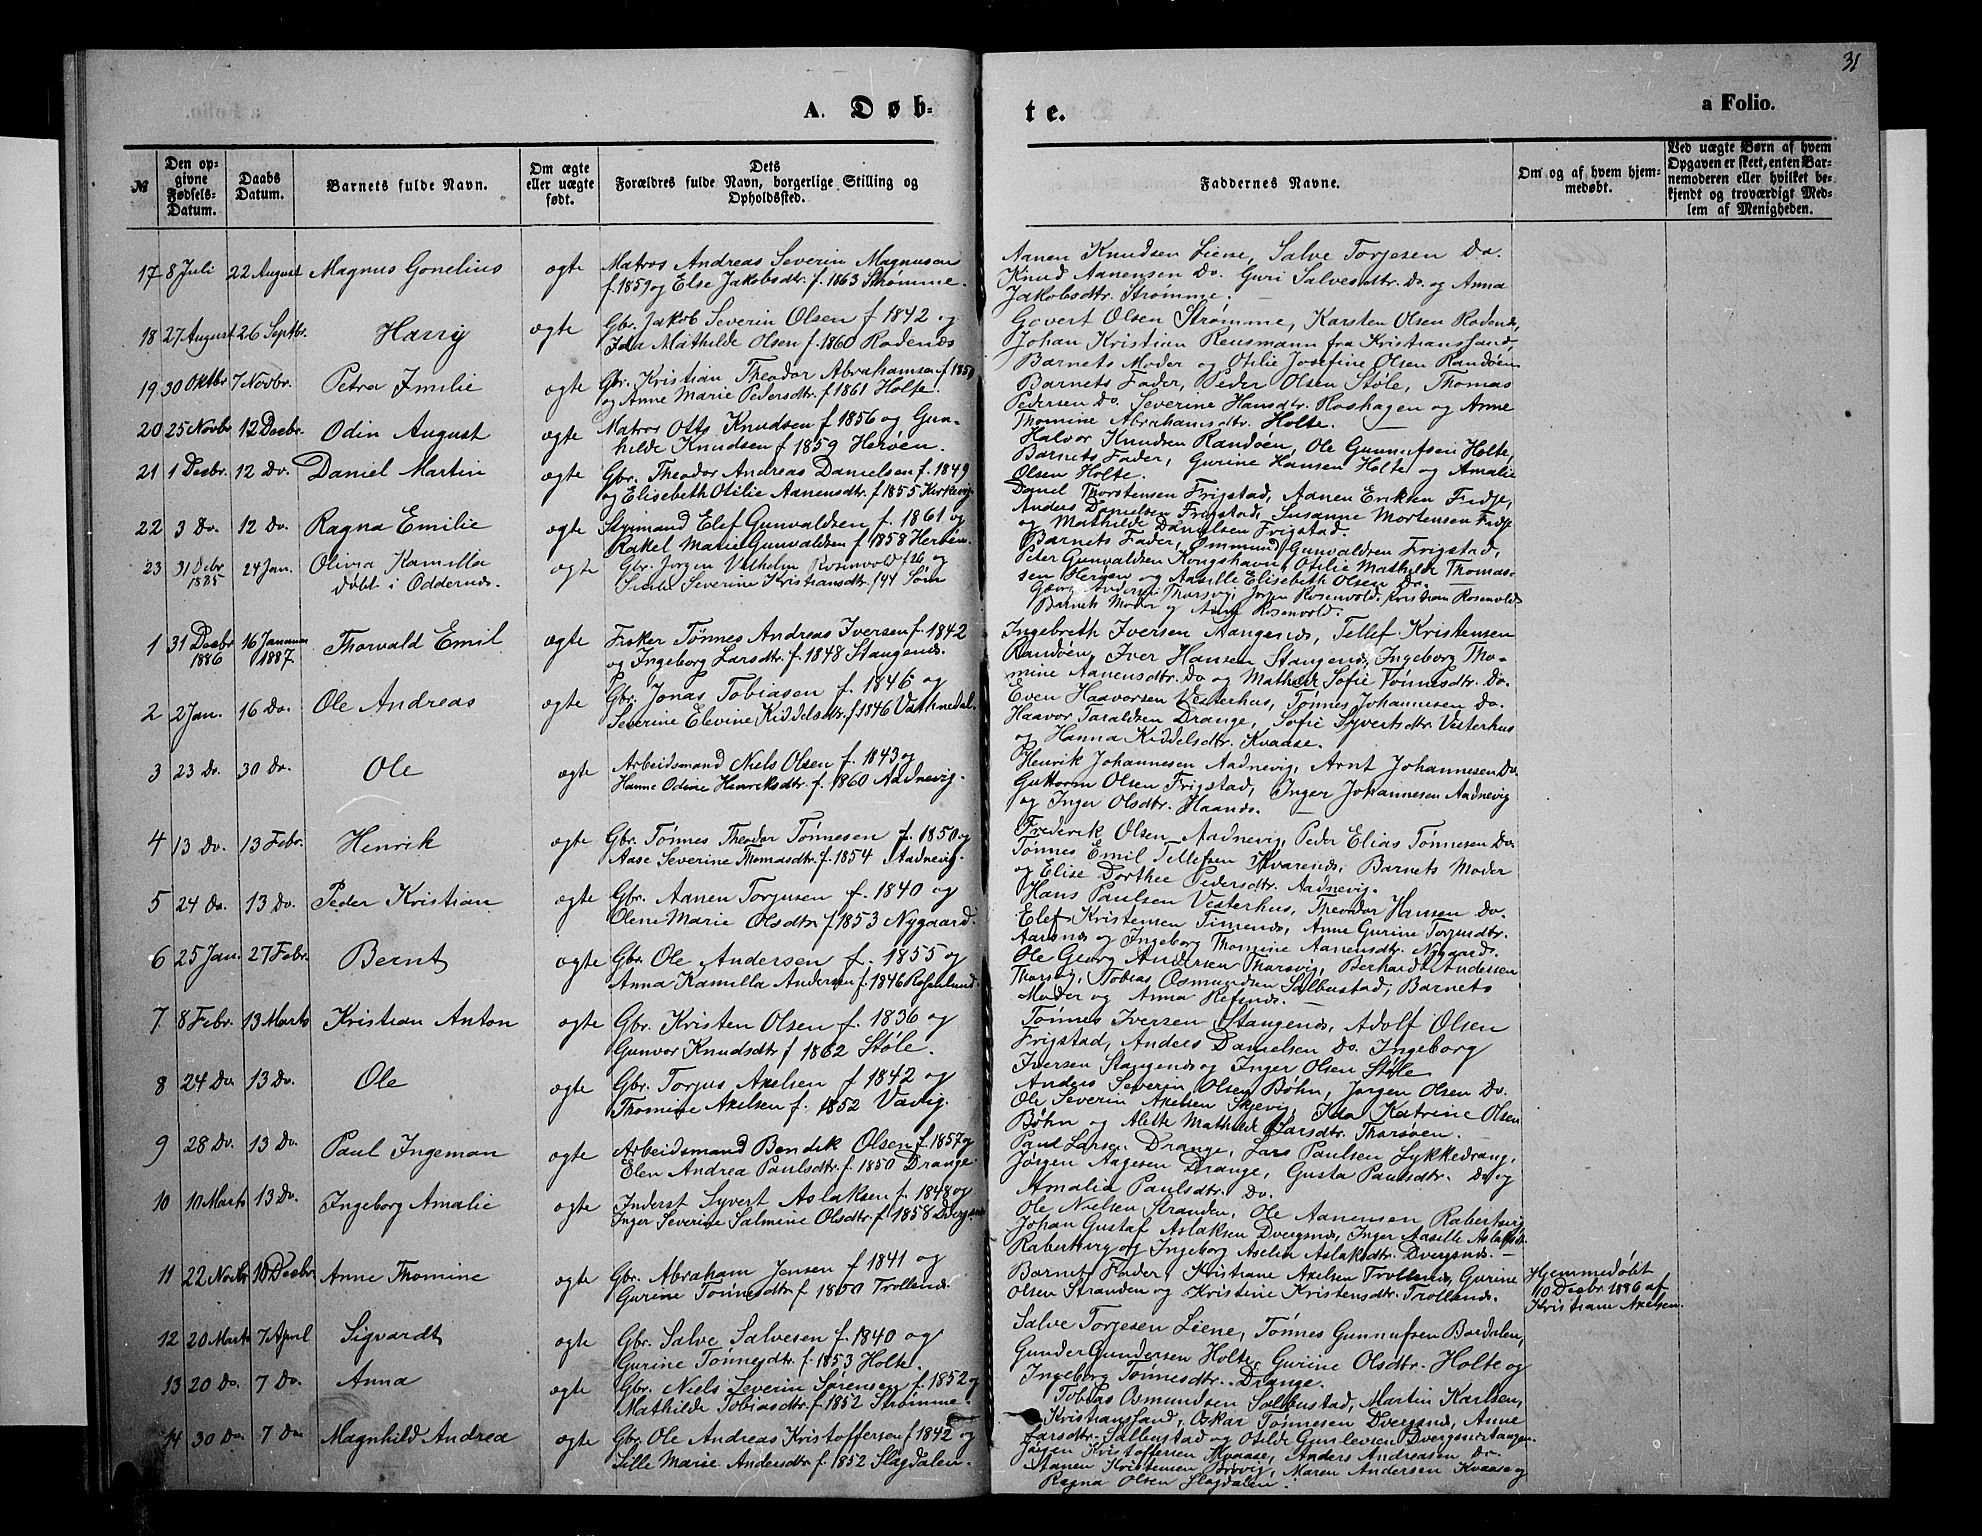 31
A. Døb-
te.
a Folio.
№
Den op-
givne
Fødsels-
Datum.
Daabs
Datum.
Barnets fulde Navn.
Om ægte
eller uægte
født.
Dets
Forældres fulde Navn, borgerlige Stilling og
Opholdssted.
Faddernes Navne.
Om og af hvem hjem-
medøbt.
Ved uægte Børn af hvem
Opgaven er skeet, enten Bar-
nemoderen eller hvilket be-
kjendt og troværdigt Med-
lem af Menigheden.
17 8 Juli 22 August Magnus Gonelius ægte Matros Andreas Severin Magnusen
f. 1859 og Else Jakobsdtr. f. 1863 Strømme.
Aanen Knudsen Liene, Salve Torjesen Do.
Knud Aanensen Do. Guri Salvesdtr. Do. og Anna
Jakobsdtr. Strømme.
18 27 August 26 Septbr. Harry ægte Gbr. Jakob Severin Olsen f. 1842 og
Ida Mathilde Olsen f. 1860 Rodenæs
Govert Olsen Strømme, Karsten Olsen Rodenæs,
Johan Kristian Reusmann fra Kristianssand,
Barnets Moder og Otilie Josefine Olsen Randøen
19 30 Oktbr. 7 Novbr. Petra Emilie ægte Gbr. Kristian Theodor Abrahamsen f. 1859
og Anne Marie Pedersdtr. f. 1861 Holte.
Barnets Fader, Peder Olsen Støle, Thomas
Pedersen Do. Severine Hansdtr. Roshagen og Anne
Thomine Abrahamsdtr. Holte.
20 25 Novbr. 12 Decbr. Odin August ægte Matros Otto Knudsen f. 1856 og Gun-
hilde Knudsen f. 1859 Herøen.
Halvor Knudsen Randøen, Ole Gunnufsen Holte,
Barnets Fader, Gurine Hansen Holte og Amalie
Olsen Holte.
21 1 Decbr. 12 Do. Daniel Martin ægte Gbr. Theodor Andreas Danielsen f. 1849
og Elisebeth Otilie Aanensdtr. f. 1855 Kirkevig
Daniel Thorstensen Frigstad, Aanen Eriksen Fidje,
Anders Danielsen Frigstad, Susanne Mortensen Fidje
og Mathilde Danielsen Frigstad.
22 3 Do. 12 Do. Ragna Emilie ægte Styrmand Elef Gunvaldsen f. 1861 og
Rakel Marie Gunvaldsen f. 1858 Herøen.
Barnets Fader, Ommund Gunvaldsen Frigstad,
Peter Gunvaldsen Kongshavn, Otilie Mathilde Thomas-
sen Herøen og Aasille Elisebeth Olsen Do.
23 31 Decbr. 1885 24 Jan. Olivia Kamilla
døbt i Oddernæs.
ægte Gbr. Jørgen Vilhelm Rosenvold f. 26 og
Severine Kristiansdtr. f. 44 Søm
Georg Andersen Thorsvig, Jørgen Rosenvold, Kristian Rosenvold
Barnets Moder og Anne Rosenvold.
1 31 Decbr 1886 16 Januar 1887. Thorvald Emil ægte Fisker Tønnes Andreas Iversen f. 1842
og Ingeborg Larsdtr. f. 1848 Stangenæs.
Ingebreth Iversen Aangenæs, Tellef Kristensen
Randøen, Iver Hansen Stangenæs, Ingeborg Tho-
mine Aanensdtr. Do og Mathilde Sofie Tønnesdtr. Do.
2 2 Jan. 16 Do. Ole Andreas ægte Gbr. Jonas Tobiasen f. 1846 og
Severine Elevine Kiddelsdtr. f. 1846 Vathnedal.
Even Haavorsen Vesterhus, Tønnes Johannesen Do.
Haavor Taraldsen Drange, Sofie Syvertsdtr. Vesterhus
og Hanna Kiddelsdtr. Kvaase.
3 23 Do. 30 Do. Ole ægte Arbeidsmand Niels Olsen f. 1843 og
Hanne Odine Henriksdtr. f. 1860 Aadnevig.
Henrik Johannesen Aadnevig, Arnt Johannesen Do.
Guttorm Olsen Frigstad, Inger Johannesen Aadnevig
og Inger Olsdtr. Haanæs.
4 13 Do. 13 Febr. Henrik ægte Gbr. Tønnes Theodor Tønnesen f. 1850 og
Aase Severine Thomasdtr. f. 1854 Aadnevig.
Frederik Olsen Aadnevig, Peder Elias Tønnesen Do.
Tønnes Emil Tellefsen Kvarenæs, Barnets Moder
og Elise Dorthee Pedersdtr. Aadnevig.
5 24 Do. 13 Do. Peder Kristian ægte Gbr. Aanen Torjusen f. 1840 og
Olene Marie Olsdtr. f. 1853 Nygaard.
Hans Paulsen Vesterhus, Theodor Hansen Do.
Elef Kristensen Timenæs, Anne Gurine Torjusdtr.
Aarsnæs og Ingeborg Thomine Aanensdtr. Nygaard.
6 25 Jan. 27 Febr. Bernt ægte Gbr. Ole Andersen f. 1855 og
Anna Kamilla Andersen f. 1846 Rosenlund.
Ole Georg Andersen Thorsvig, Berhardt Andersen
Thorsvig, Tobias Osmundsen Salbustad, Barnets
Moder og Anna Refsnæs.
7 8 Febr. 13 Marts Kristian Anton ægte Gbr. Kristen Olsen f. 1836 og
Gunvor Knudsdtr f. 1862 Støle.
Tønnes Iversen Stangenæs, Adolf Olsen
Frigstad, Anders Danielsen Do. Ingeborg
Iversen Stangenæs og Inger Olsen Støle
8 24 Do. 13 Do. Ole ægte Gbr. Torjus Axelsen f. 1842 og
Thomine Axelsen f. 1852 Vavig.
Anders Severin Olsen Bøhn, Jørgen Olsen Do.
Ole Severin Axelsen Skjevig, Ida Katrine Olsen
Bøhn og Alette Mathilde Larsdtr. Thorsøen.
9 28 Do. 13 Do. Paul Ingeman ægte Arbeidsmand Bendik Olsen f. 1857 og
Elen Andrea Paulsdtr. f. 1850 Drange.
Paul Larsen Drange, Lars Paulsen Lykkedrang,
Jørgen Aagesen Drange, Gusta Paulsdtr. Do og
Amalia Paulsdtr. Do.
10 10 Marts 13 Do. Ingeborg Amalie ægte Inderst Syvert Aslaksen f. 1848 og
Inger Severine Salmine Olsdtr. f. 1858 Dvergsnæs
Ole Nielsen Stranden, Ole Aanensen Rabersvig
Johan Gustaf Aslaksen Dvergsnæs, Inger Aasille Aslaksdtr.
Rabersvig og Ingeborg Aselia Aslaksdtr. Dvergsnæs.
11 22 Novbr. 10 Decbr Anne Thomine ægte Gbr. Abraham Jensen f. 1841 og
Gurine Tønnesdtr f. 1850 Trollenæs.
Barnets Fader, Kristiane Axelsen Trollenæs, Gurine
Olsen Stranden og Kristine Kristensdtr. Trollenæs.
Hjemmedøbt
10 Decbr. 1886 af
Kristiane Axelsen.
12 20 Marts 7 April Sigvardt ægte Gbr. Salve Salvesen f. 1840 og
Gurine Tønnesdtr. f. 1853 Holte.
Salve Torjesen Liene, Tønnes Gunnufsen Boedalen,
Gunder Gundersen Holte, Gurine Olsdtr. Holte og
Ingeborg Tønnesdtr. Drange.
13 20 Do. 7 Do. Anna ægte Gbr. Niels Severin Sørensen f. 1852 og
Mathilde Tobiasdtr f. 1852 Strømme.
Tobias Osmundsen Salbustad, Martin Karlsen,
Kristianssand, Oskar Tønnesen Dvergsnæs, Anne
Larsdtr. Salbustad og Otilde Gunlevsen Dvergsnæstangen.
14 30 Do 7 Do Magnhild Andrea ægte Gbr. Ole Andreas Kristoffersen f. 1842 og
Sille Marie Andersdtr. f. 1852 Slagdalen.
Jørgen Kristoffersen Kvaase, Anders Andreasen Do.
Aanen Kristensen Drovig, Maren Andersen Kvaase og
Ragna Olsen Slagdalen.